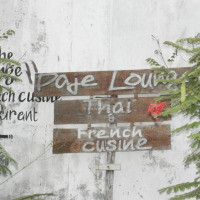 he
nch cuisine
urent
Paje Loung
Thai
&
French
cuisine